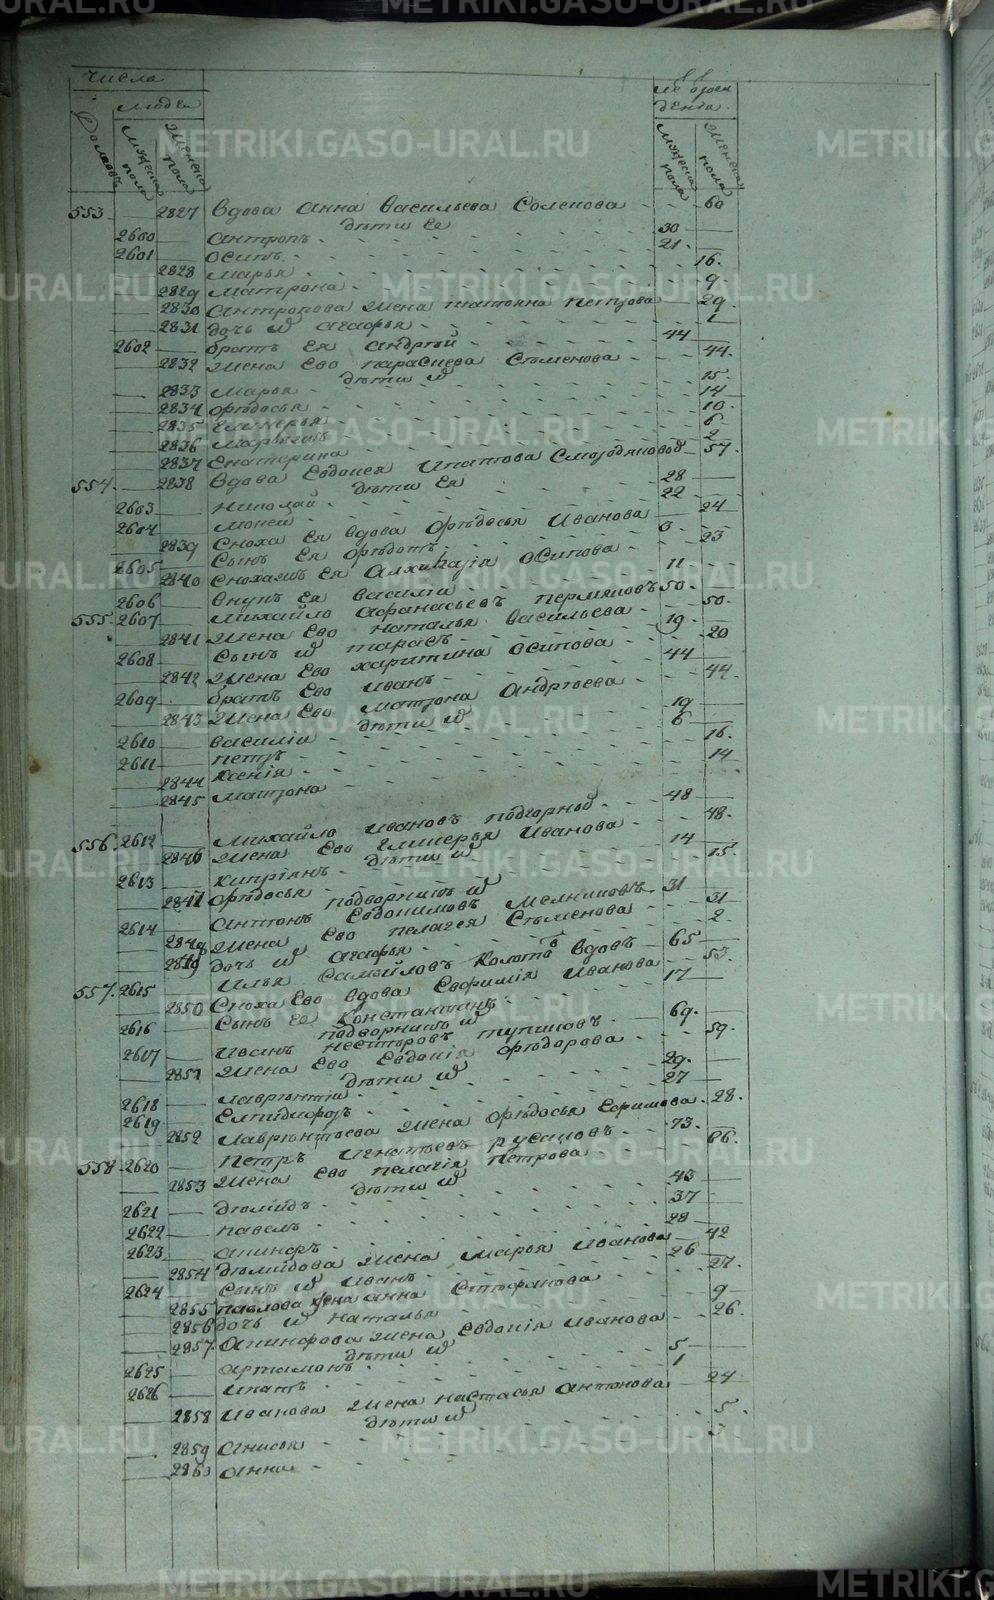 METRIKI.GASO-URAL.RU
числа
людей
Домовъ
Мужеска пола
Женска пола
рождения
Мужеска пола
Женска пола
553 2827 вдова анна васильева Соленова 60
дѣти ее
2600 антропъ 30
2601 осипъ 21
2828 марья 16
2829 матрона 9
2830 антропова жена татьяна петрова 29
2831 дочь их агафья 1
2602 братъ ея андрѣй 44
2832 жена ево параскева Сѣменова 44
дѣти их
2833 марья 15
2834 фѣдосья 14
2835 гликерья 10
2836 6
2837 Екатерина 2
554 2838 вдова Евдокея Ипатова 57
дѣти ея
2603 николай 28
2604 моисей 22
2839 сноха ея вдова Фѣдосья Иванова 24
2605 Сынъ ея Фѣдотъ 3
2840 ея осипова 23
2606 внукъ ея василий 11
555 2607 михайло афанасьевъ пермяковъ 50
2841 жена ево наталья васильева 50
2608 Сынъ их тарасъ 19
2842 жена ево харитина осипова 20
2609 братъ ево иванъ 44
2843 жена ево матрона андрѣева 44
дѣти их
2610 василий 19
2611 петръ 6
2844 ксенiя 16
2845 матрона 14
556 2612 михайло ивановъ подгорной 48
2846 жена ево гликерья иванова 48
дѣти их
2613 кипрiянъ 14
2847 фѣдосья 15
подворникъ их
2614 антонъ Евдокимовъ мелниковъ 31
2848 жена ево пелагея Сѣменова 31
2849 дочь их агафья 2
557 2615 илья Самойловъ вдовъ 65
2850 Сноха ево вдова Евфимiя иванова 53
2616 Сынъ ее Константинъ 17
подворникъ их
2617 иванъ нестѣровъ тупицовъ 69
2851 жена ево Евдокiя фѣдорова 59
дѣти их
2618 лаврѣнтiй 29
2619 Елпидифоръ 27
2852 лаврѣнтьева жена Фѣдосья Ефимова 28
558 2620 петръ игнатьевъ русаковъ 73
2853 жена ево пелагiя петрова 66
дѣти их
2621 43
2622 павелъ 37
2623 акинфъ 28
2854 жена марья иванова 42
2624 сынъ их иванъ 26
2855 павлова жена анна Стѣфанова 27
2856 дочь их наталья 9
2857 акинфова жена Евдокiя иванова 26
дѣти их
2625 артамонъ 5
2626 ипатъ 1
2858 иванова жена настасья антонова 24
дѣти их
2859 анисья 5
2860 анна